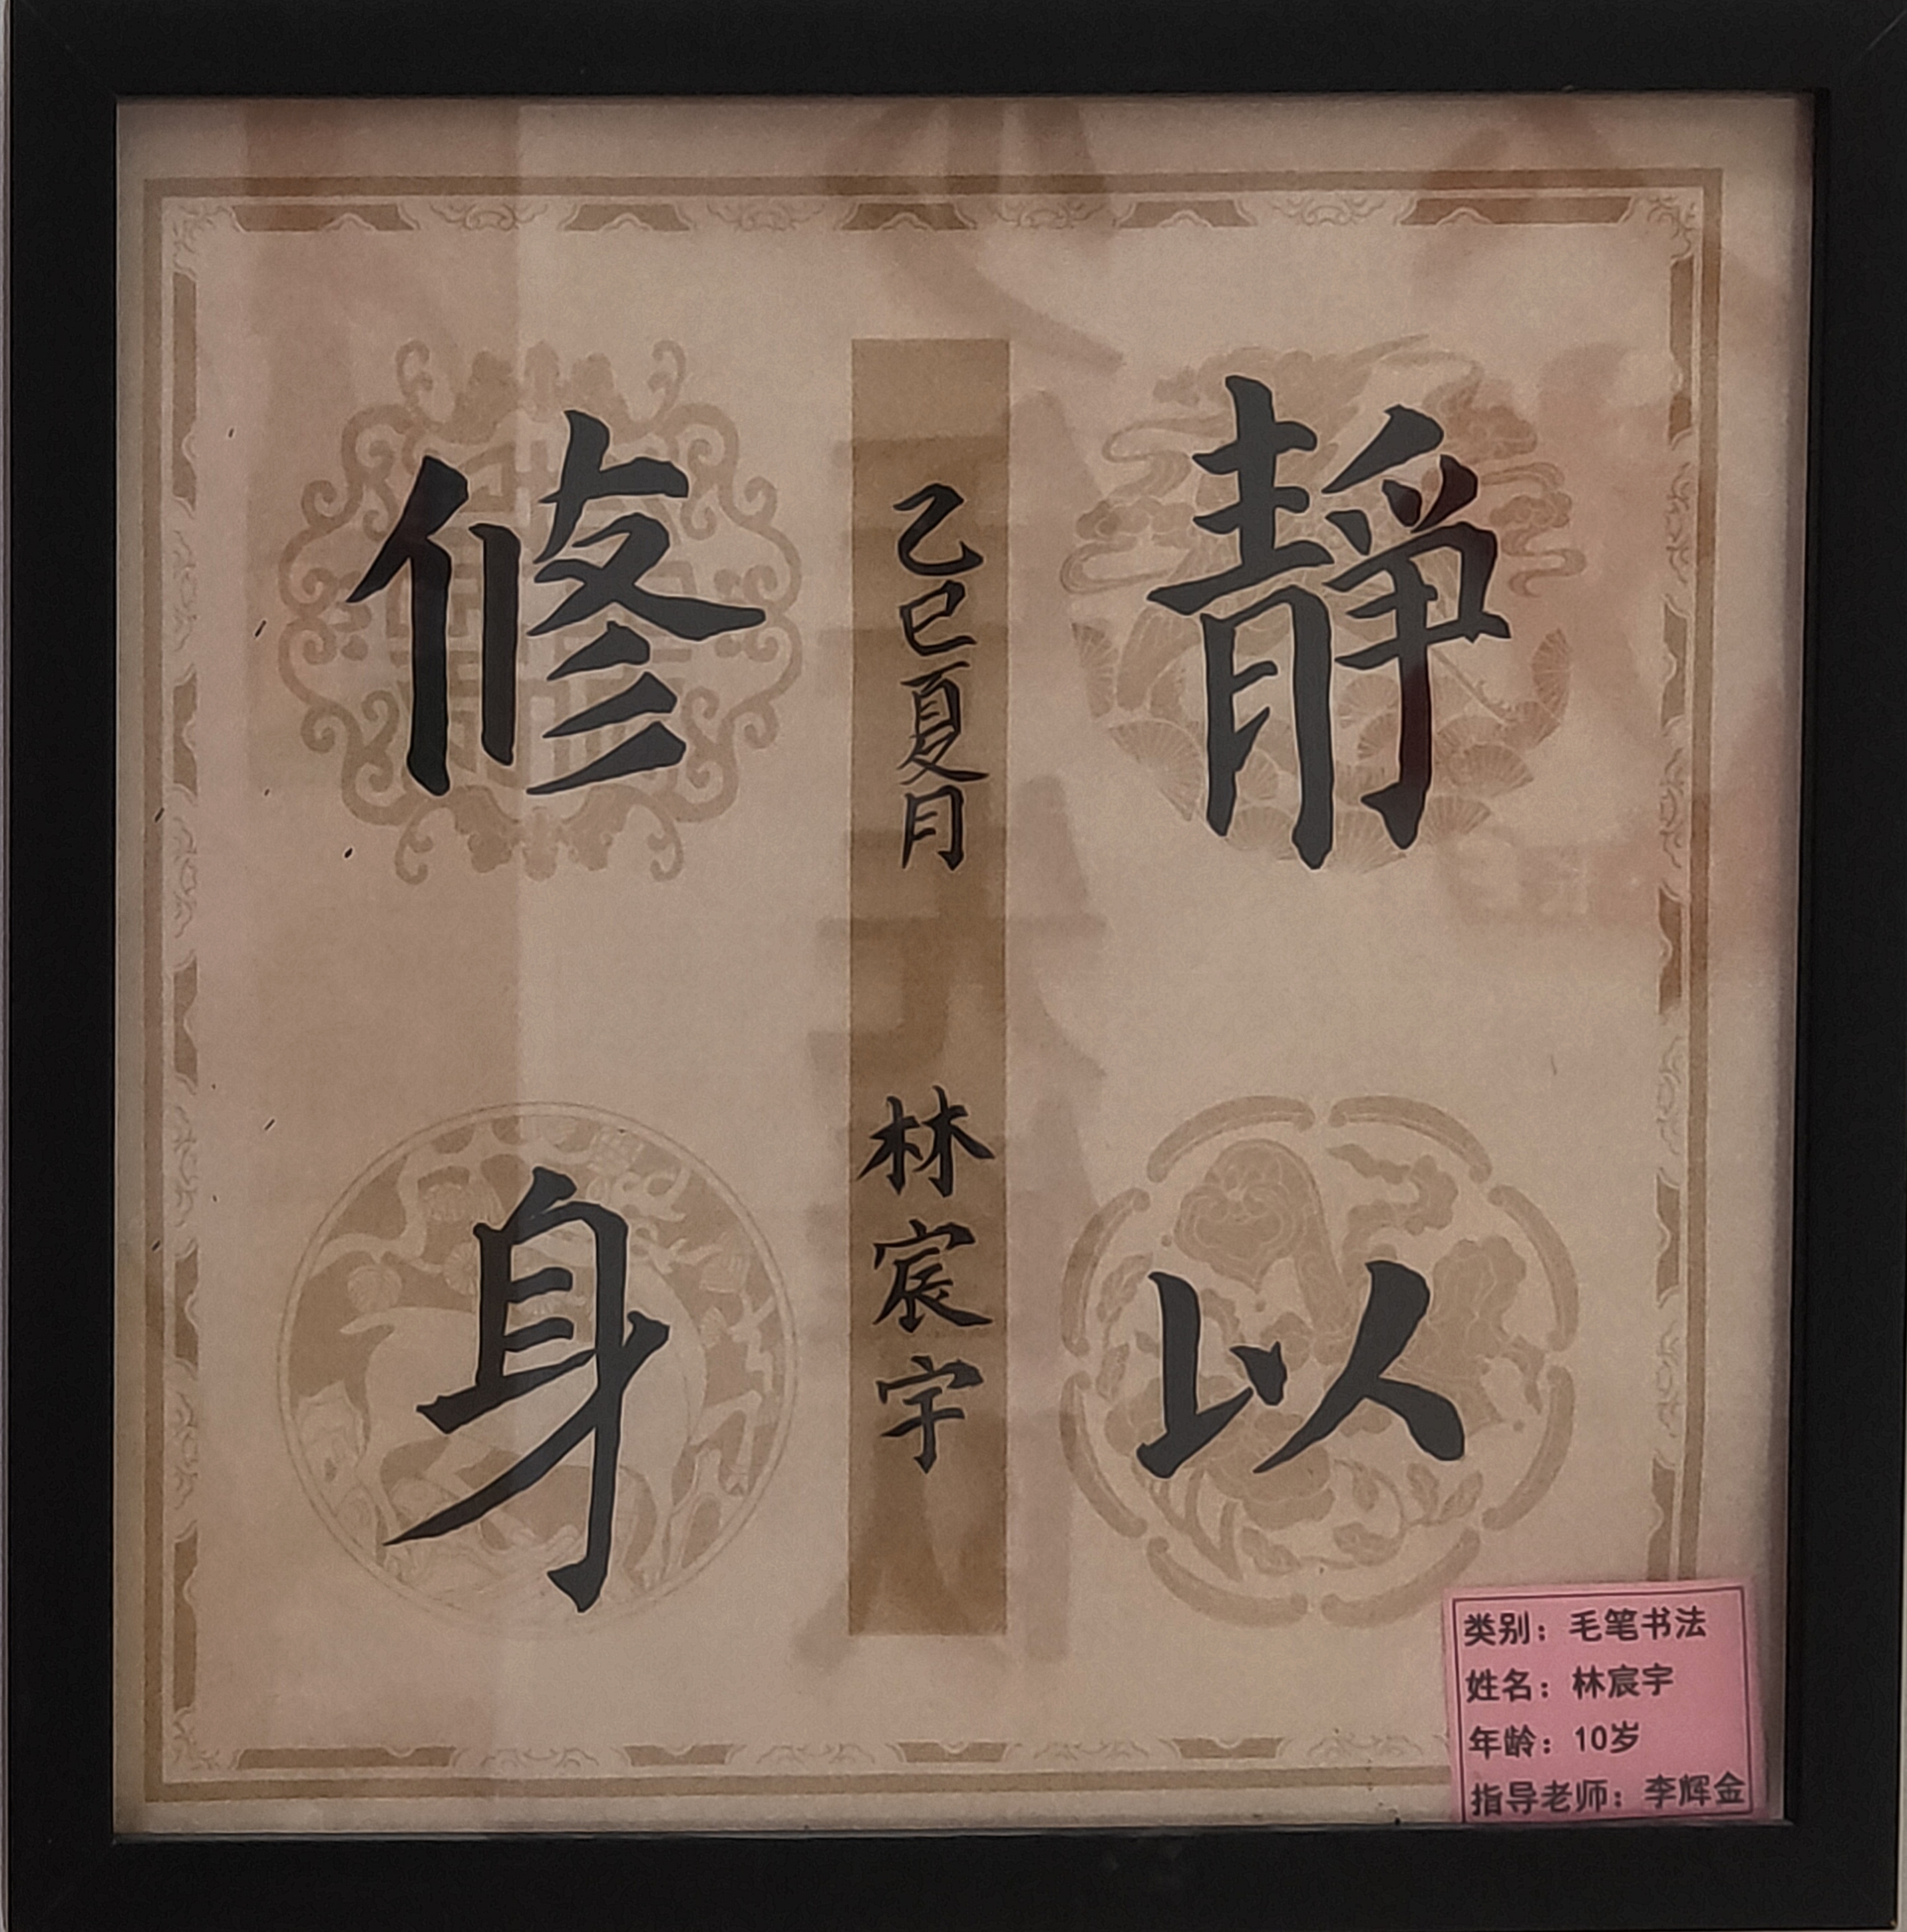 靜以
修身
乙巳夏月 林宸宇
类别：毛笔书法
姓名：林宸宇
年龄：10岁
指导老师：李辉金